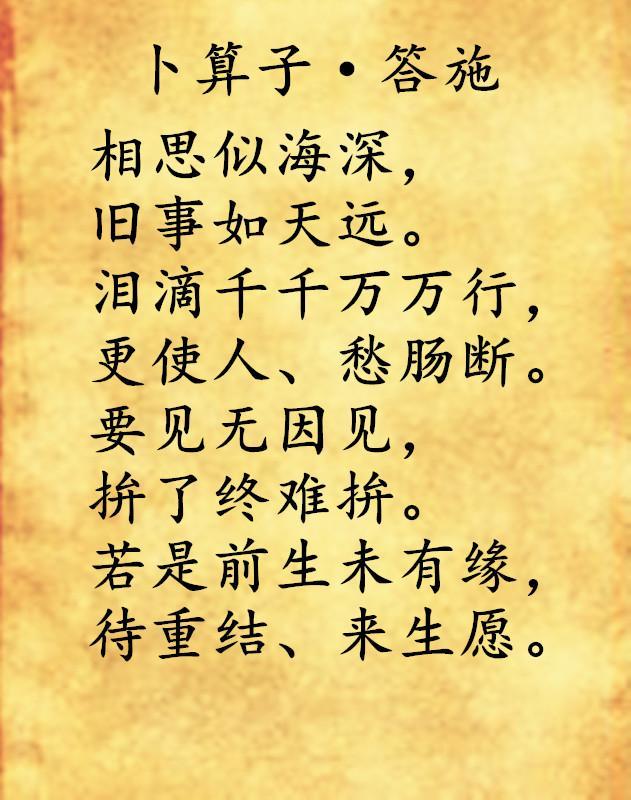 卜算子·答施
相思似海深，
旧事如天远。
泪滴千千万万行，
更使人、愁肠断。
要见无因见，
拚了终难拚。
若是前生未有缘，
待重结、来生愿。